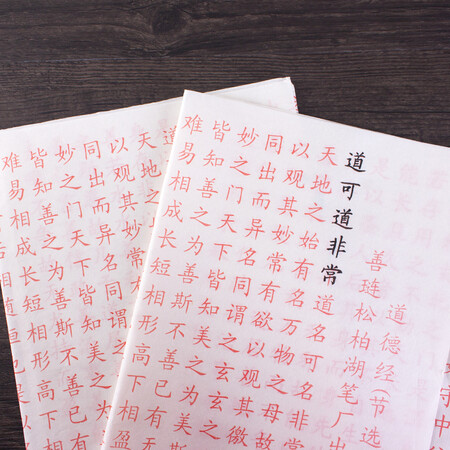 道德经节选
善琏松柏湖笔厂出
道可道非常道名可名非常
天地之始有名万物之母故
以观其妙常有欲以观其徼
同出而异名同谓之玄
妙之门天下皆知美之
皆知善之为善斯不善已有
难易相成长短相形高下相
道
天地之始
以观其妙常
同出而异名同谓之
妙之门天下皆知美之
皆知善之为善斯不善已有
难易相成长短相形高下相盈